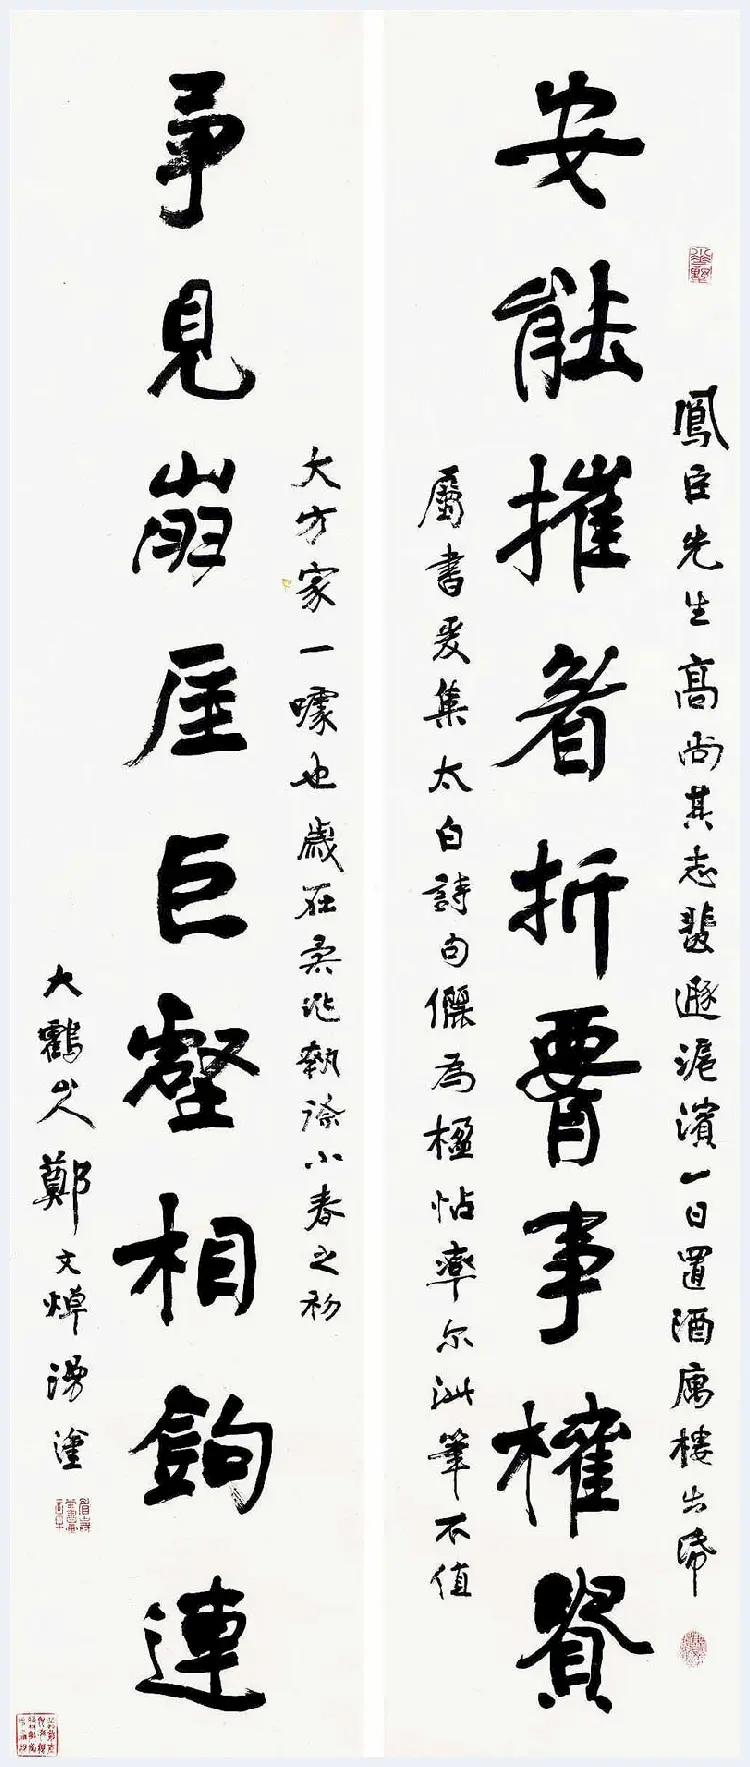 鳳臣先生高尚其志蜚遯滬濱一日置酒寓樓出帋
安能摧眉折腰事權貴
屬書爰集太白詩句儷為楹帖率尔泚筆不值
大方家一噱也歲在柔兆執徐小春之初
爭見崩厓巨壑相鉤連
大鶴山人鄭文焯漫塗